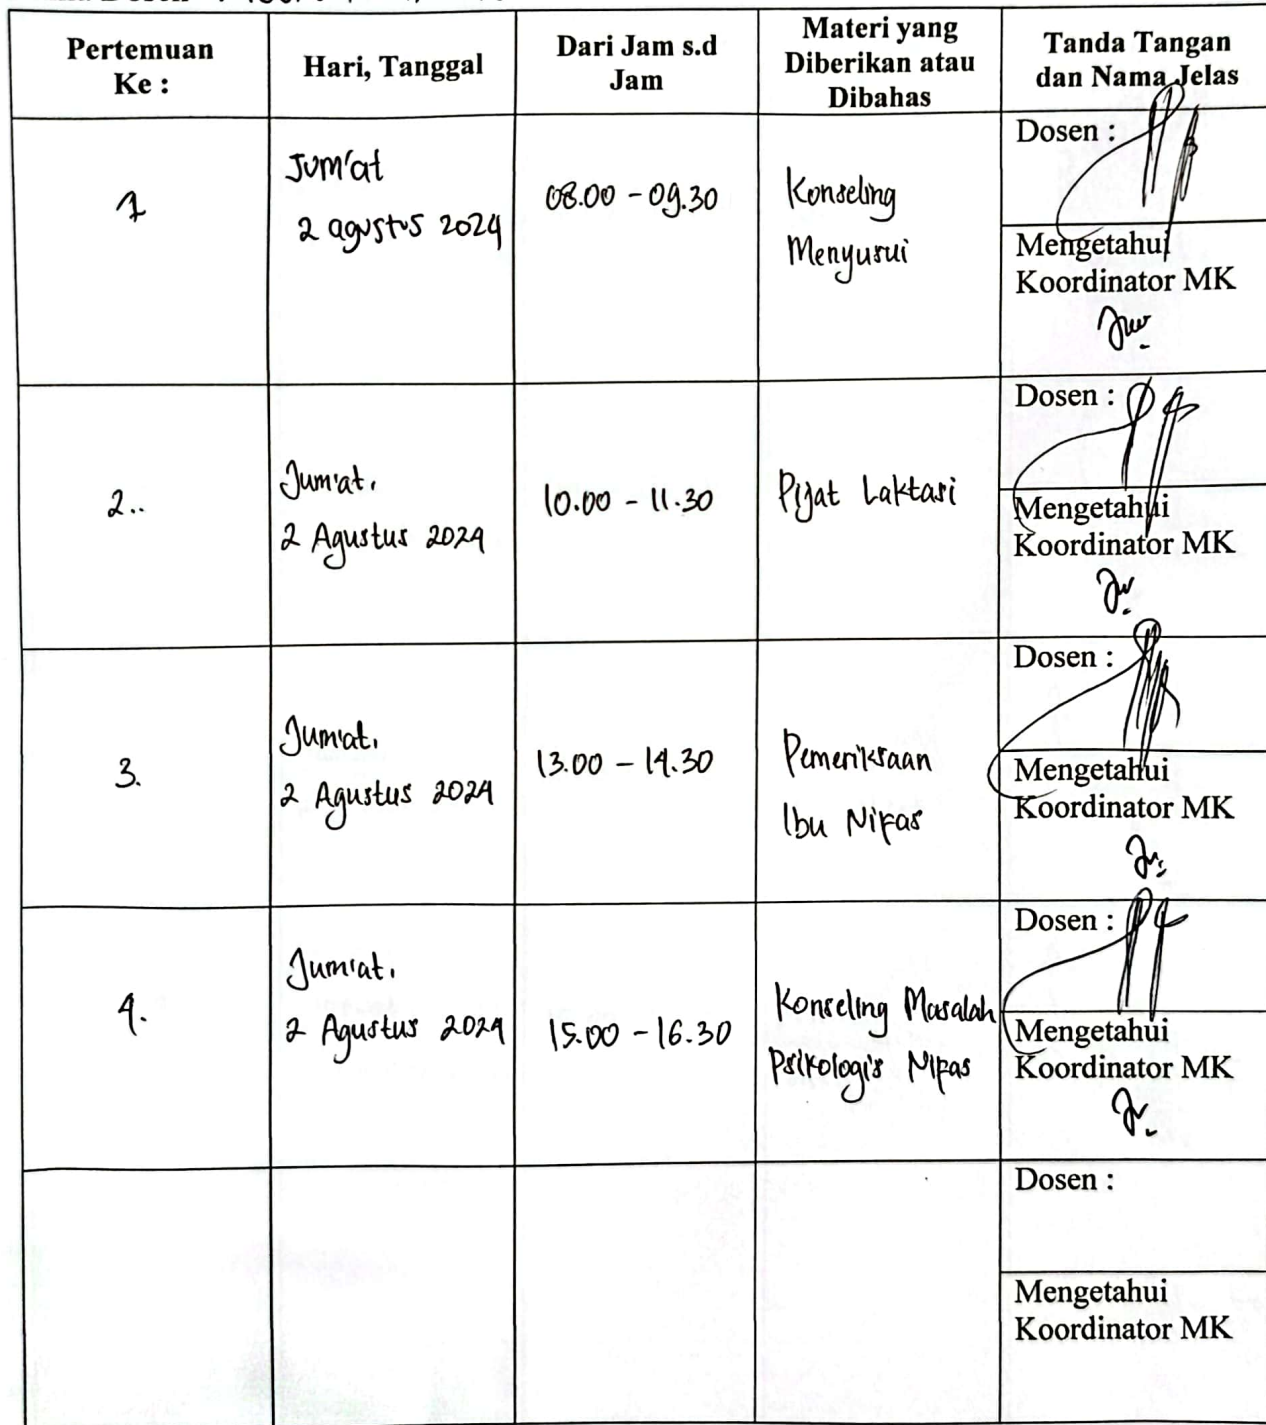 Dosen
Pertemuan
Ke :
Hari, Tanggal
Dari Jam s.d
Jam
Materi yang
Diberikan atau
Dibahas
Tanda Tangan
dan Nama Jelas
1
Jum'at
2 agustus 2024
08.00 - 09.30
Konseling
Menyusui
Dosen :
Mengetahui
Koordinator MK
2..
Jum'at.
2 Agustus 2024
10.00 - 11.30
Pijat Laktasi
Dosen :
Mengetahui
Koordinator MK
3.
Jum'at.
2 Agustus 2024
13.00 - 14.30
Pemeriksaan
Ibu Nifas
Dosen :
Mengetahui
Koordinator MK
4.
Jum'at.
2 Agustus 2024
15.00 - 16.30
Konseling Masalah
Psikologis Nifas
Dosen :
Mengetahui
Koordinator MK
Dosen :
Mengetahui
Koordinator MK